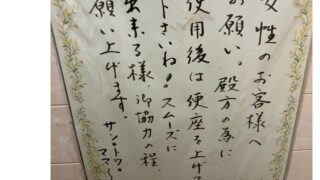 女性のお客様へ
お願い。殿方の為に
使用後は便座を上げて
下さいね!スムーズに
出来る様、御協力の程、
願い上げます。
サン・トワ・
ママ〜